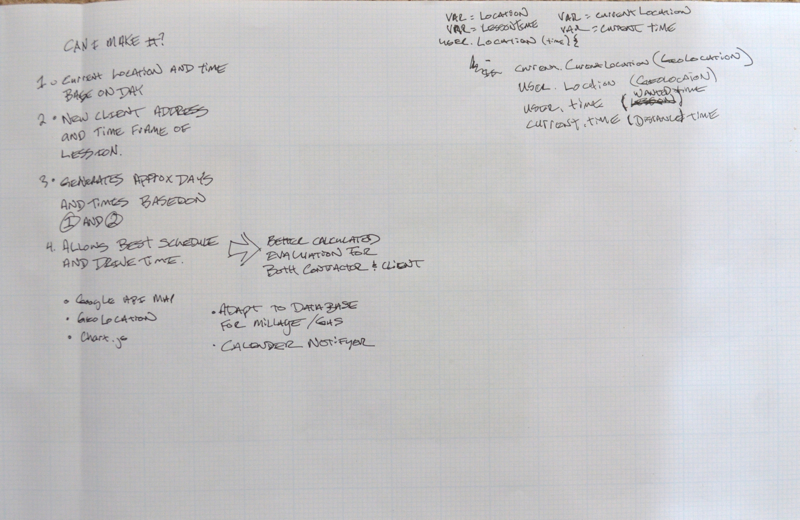 CAN I MAKE it?
1. CURRENT LOCATION AND TIME
BASE ON DAY
2. NEW CLIENT ADDRESS
AND TIME FRAME OF
LESSION.
3. GENERATES APPROX DAYS
AND TIMES BASED ON
1 AND 2
4. ALLOWS BEST SCHEDULE
AND DRIVE TIME.
BETTER CALCULATED
EVALUATION FOR
BOTH CONTACTOR & CLIENT
• Google API MAP
• GEOLOCATION
• Chart.js
• ADAPT TO DATABASE
FOR MILLAGE/GAS
• CALENDER NOTIFYER
VAR = LOCATION VAR = CURRENT LOCATION
VAR = LESSONTIME VAR = CURRENT TIME
USER.LOCATION (time) {
CURRENT.CURRENTLOCATION (GEOLOCATION)
USER.LOCATION (GEOLOCAION)
USER.TIME (WANTED TIME)
CURRENT.TIME (DISTANCE) TIME